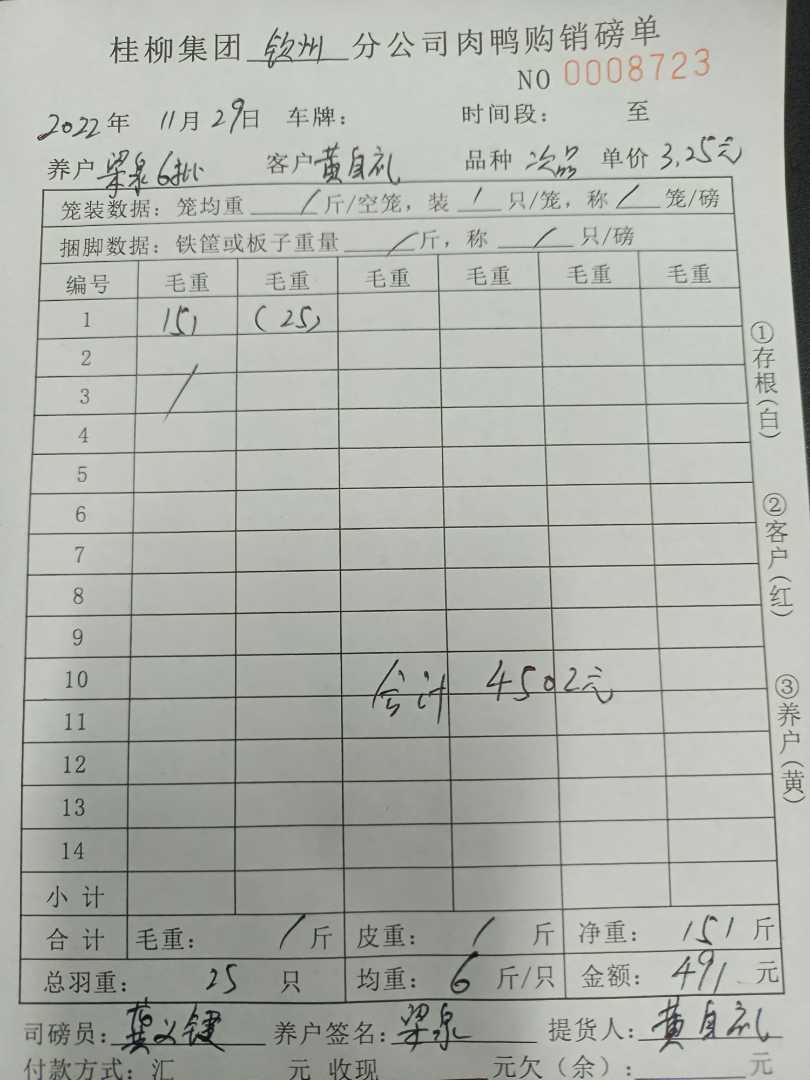 桂柳集团 钦州 分公司肉鸭购销磅单
NO 0008723
2022年 11月29日 车牌： 时间段： 至
养户 梁泉6批 客户 黄自礼 品种 次品 单价 3.25元
笼装数据：笼均重 / 斤/空笼，装 / 只/笼，称 / 笼/磅
捆脚数据：铁筐或板子重量 / 斤，称 / 只/磅
编号 毛重 毛重 毛重 毛重 毛重 毛重
1 151 (25)
2
3 /
4
5
6
7
8
9
10 合计 4502元
11
12
13
14
小计
合计 毛重： / 斤 皮重： / 斤 净重： 151 斤
总羽重： 25 只 均重： 6 斤/只 金额： 491 元
司磅员： 养户签名：梁泉 提货人：黄自礼
付款方式：汇 元 收现 元欠（余）： 元
①存根(白)
②客户(红)
③养户(黄)